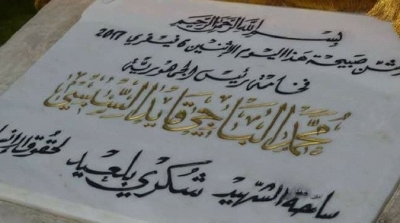 بسم الله الرحمن الرحيم
دشن صبيحة هذا اليوم الاثنين 6 فيفري 2017
فخامة رئيس الجمهورية
محمد الباجي قايد السبسي
ساحة الشهيد شكري بلعيد